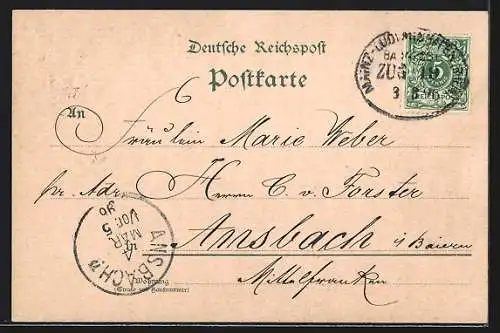 Deutsche Reichspost
Postkarte
MAINZ-LUDWIGSHAFEN
BAHNPOST
ZUG
3 8 96
5
An
Fräulein Marie Weber
pr. Adr. Herrn C. v. Forster
Ansbach i/Baiern
Mittelfranken
ANSBACH
4
MAR
Vor 5
96
Wohnung
(Straße und Hausnummer)